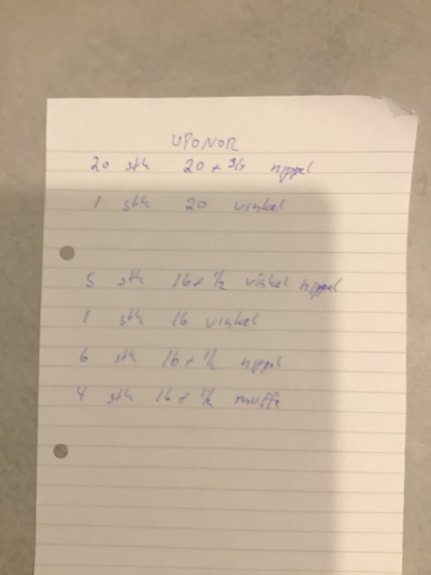 UPONOR
20 stk 20 + 3/4 nippel
1 stk 20 vinkel
5 stk 16 + 1/2 vinkel nippel
1 stk 16 vinkel
6 stk 16 + 1/2 nippel
4 stk 16 + 1/2 muffe